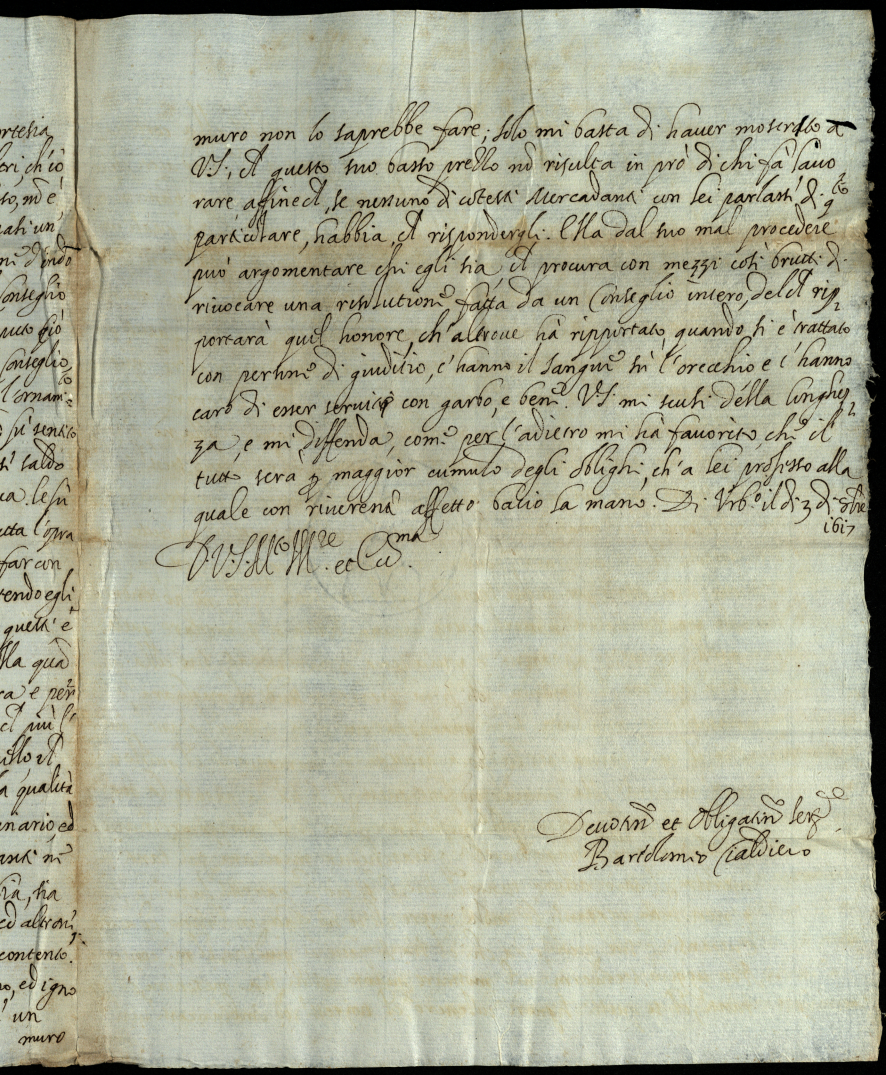 ortesia
eri, ch'io
sto, mè è
rati un
Conseglio
Conseglio
l'ornam.to
sù sentito
sì saldo
ua. le sù
utta l'opra
far con
tendo egli
questi è
lla quàl
ra e per
più l'
la qualità
enario, ed
bia, sia
ed altroni
contento.
no, ed igno
' un
muro
muro non lo saprebbe fare; solo mi basta di hauer mostrato a
V.S., ch questo suo basso prezzo nõ risulta in prò di chi fà lauo
rare affinech, se nessuno di cotesti Mercadanti con lei parlasti, di q.to
particulare, habbia, ch rispondergli. Ella dal suo mal procedere
può argomentare chi egli sia, ch procura con mezzi così brutti di
riuocare una risolutione fatta da un Conseglio intero, delch rip
portarà quel honore, ch'altroue hà ripportato, quando si è trattato
con persone di giuditio, c'hanno il sangue sù l'orecchio e c'hanno
caro di esser seruiti con garbo, e bene. V.S. mi scusi della lunghez
za, e mi diffenda, come per l'adietro mi hà fauorito che il
tutto serà p maggior cumulo degli oblighi, ch'a lei professo alla
quale con riuerente affetto bacio la mano. Di Urb.o il dì 3 di 8bre
1617
D. V.S. M.to Ill.re et Ecc.ma
Deuotiss.o et Obligatiss.o Ser.re
Bartolomeo Cialdiero